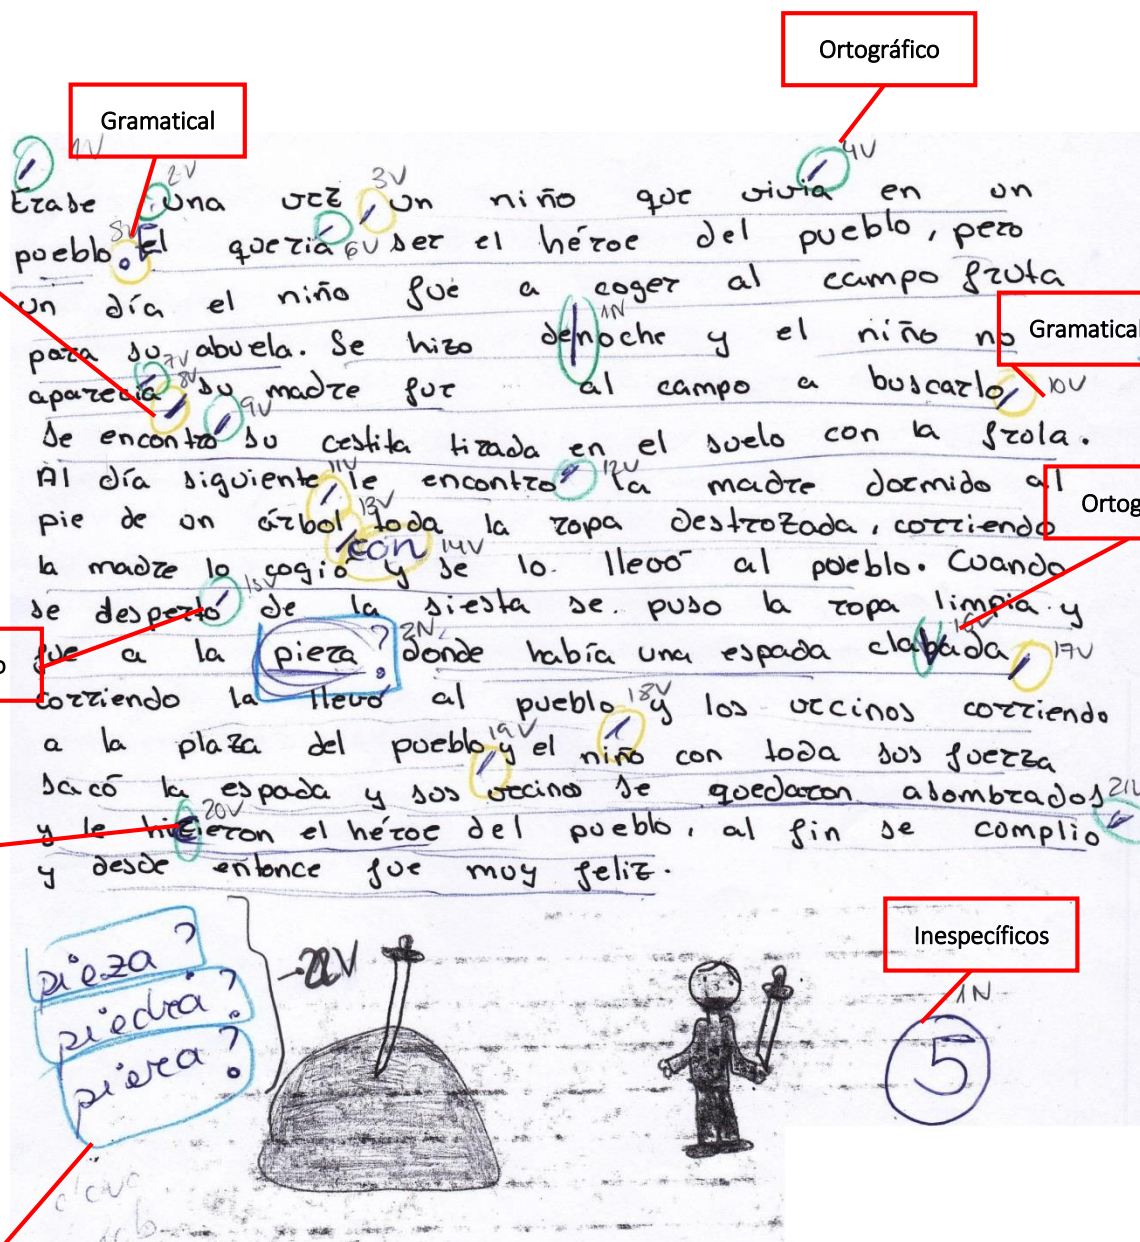 Ortográfico
Gramatical
1V
2V
3V
4V
Erase una vez un niño que vivia en un
8V
6V
pueblo. El queria ser el héroe del pueblo, pero
un día el niño fue a coger al campo fruta
1N
Gramatical
para su abuela. Se hizo denoche y el niño no
7V
8V
9V
10V
aparecia su madre fue al campo a buscarlo
se encontro su cestita tirada en el suelo con la frola.
11V
12V
Al día siguiente le encontro la madre dormido al
13V
Ortog
pie de un árbol toda la ropa destrozada, corriendo
con
14V
la madre lo cogió y se lo llevó al pueblo. Cuando
15V
se desperto de la siesta se puso la ropa limpia y
16V
2N
o
fue a la pieza ? donde había una espada clabada
17V
corriendo la llevó al pueblo y los vecinos corriendo
18V
19V
a la plaza del pueblo y el niño con toda sus fuerza
sacó la espada y sus vecinos se quedaron asombrados
20V
21V
y le hicieron el héroe del pueblo, al fin se complio
y desde entonce fue muy feliz.
Inespecíficos
pieza?
-22V
1N
piedra?
piera?
5